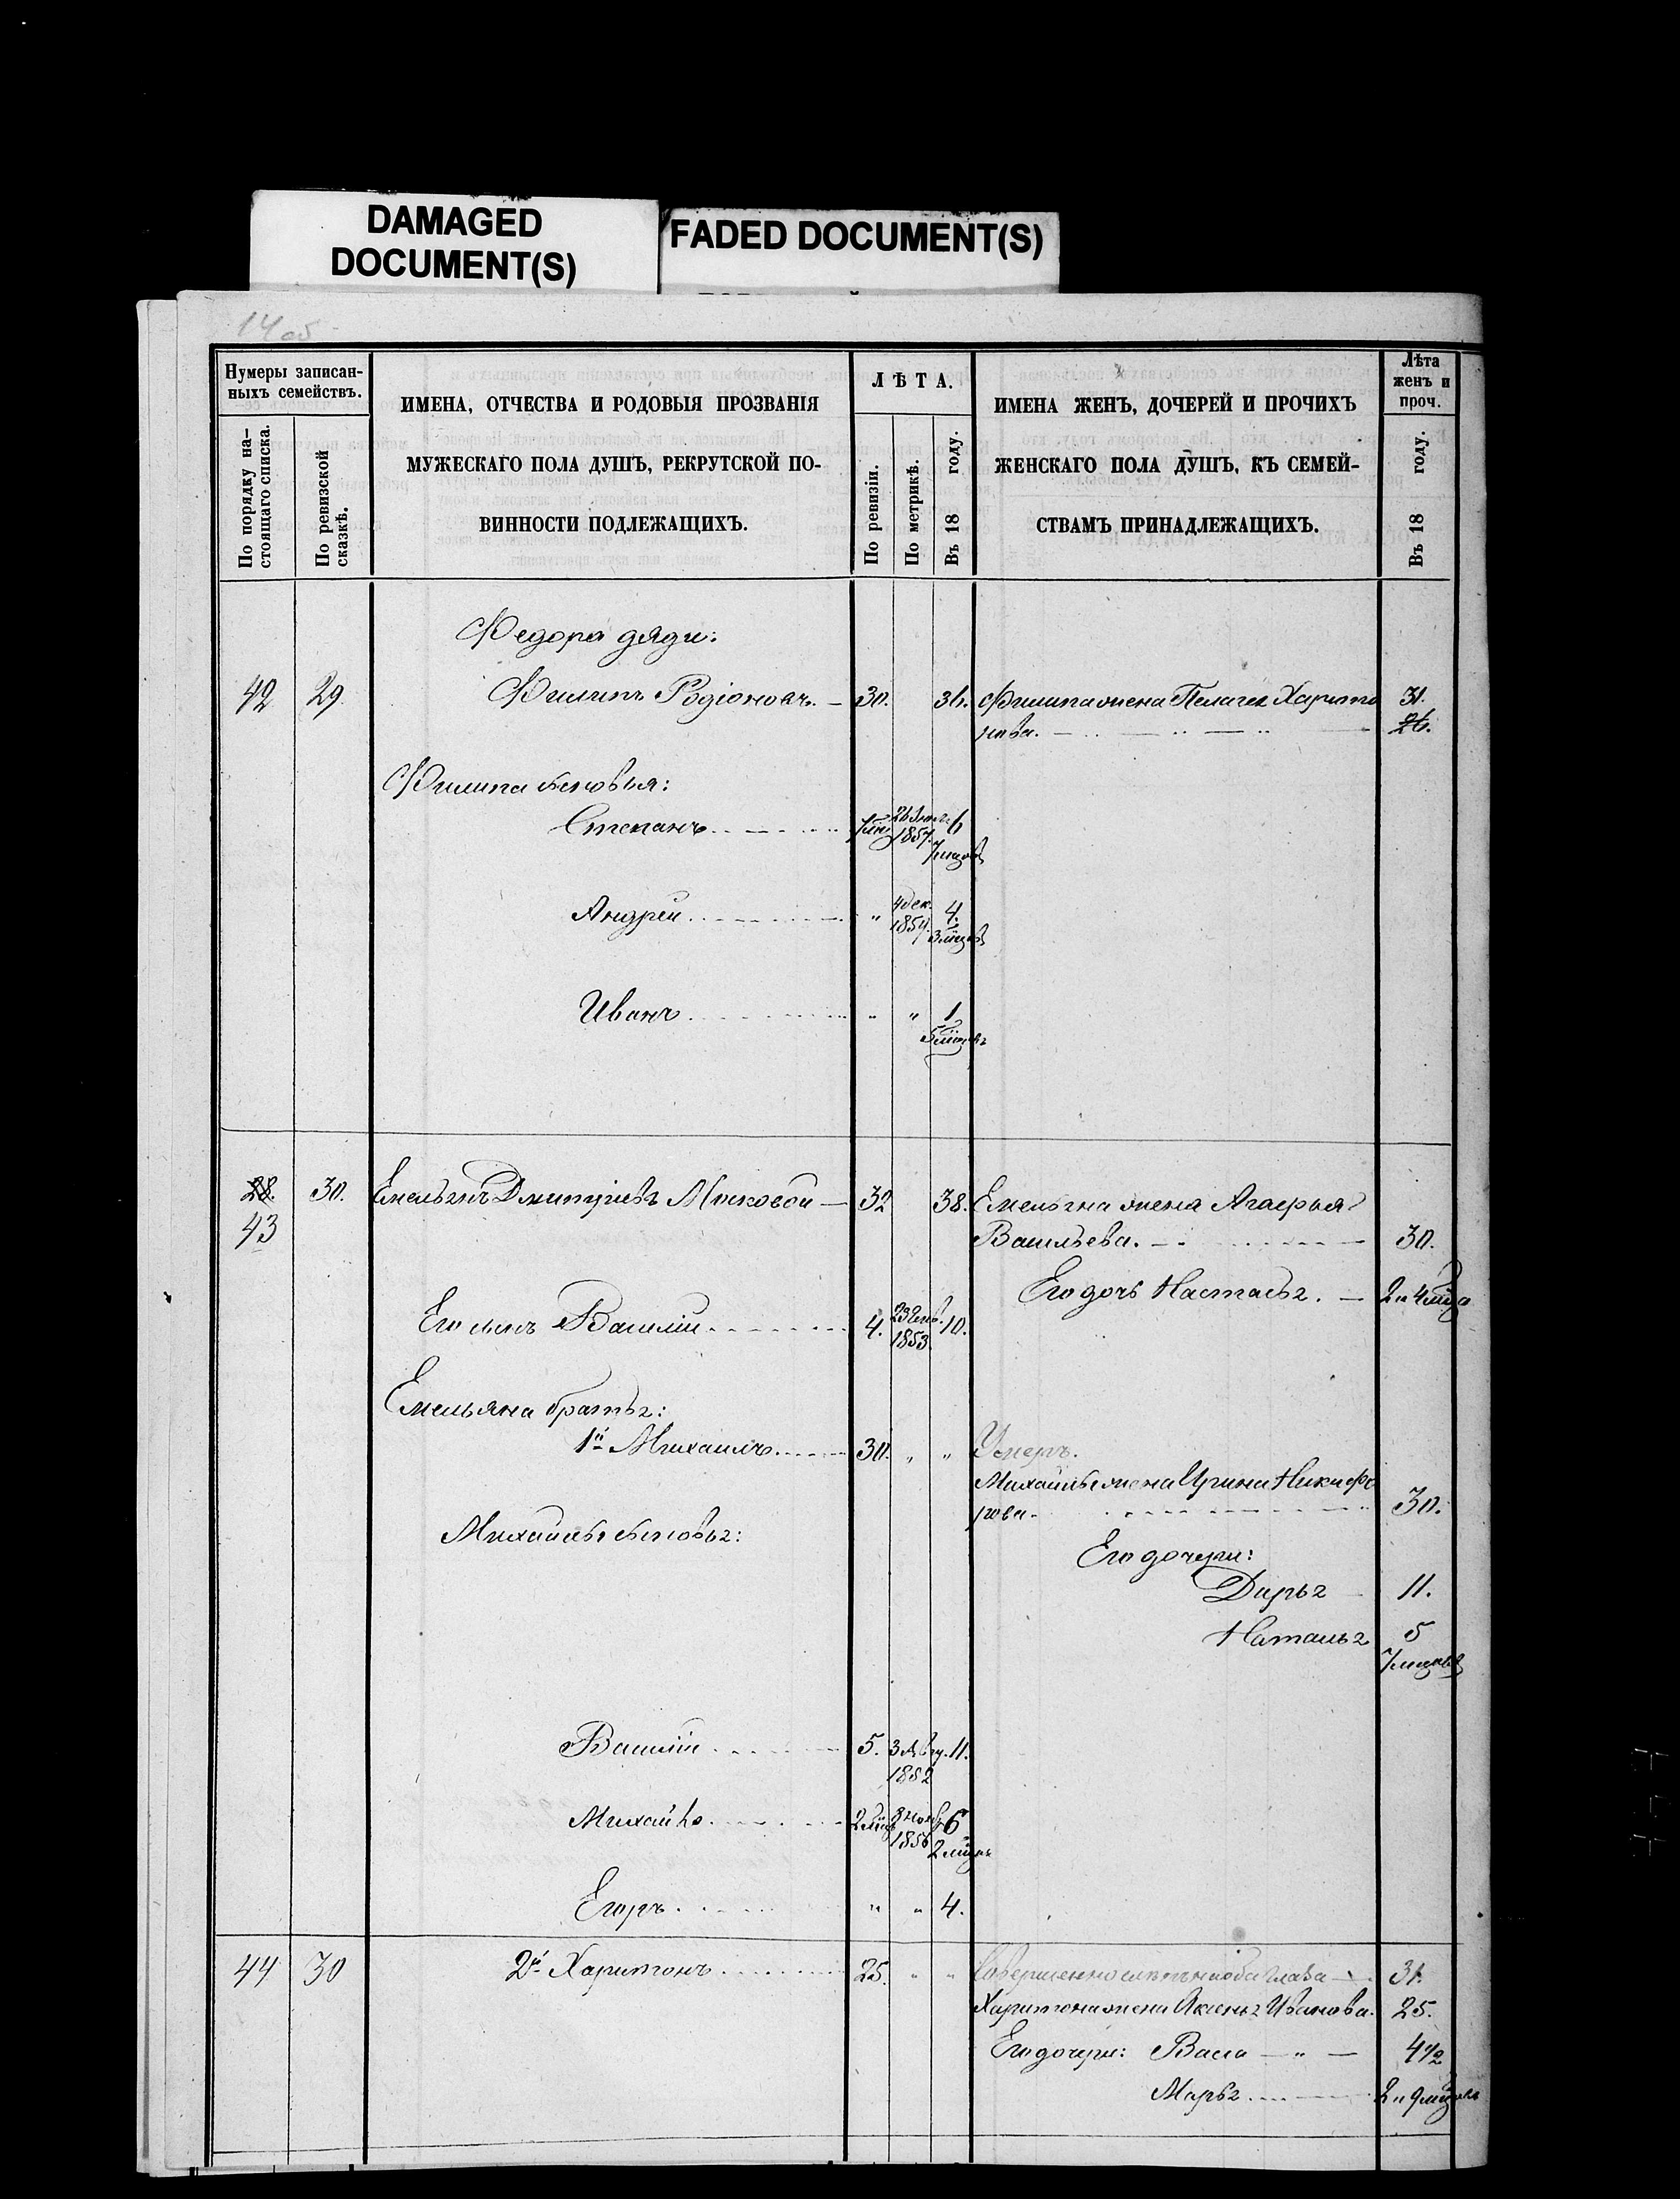 DAMAGED
DOCUMENT(S)
FADED DOCUMENT(S)
14 об
Нумеры записан-
ныхъ семействъ.
По порядку на-
стоящаго списка.
По ревизской
сказкѣ.
ИМЕНА, ОТЧЕСТВА И РОДОВЫЯ ПРОЗВАНІЯ
МУЖЕСКАГО ПОЛА ДУШЪ, РЕКРУТСКОЙ ПО-
ВИННОСТИ ПОДЛЕЖАЩИХЪ.
ЛѢТА.
По ревизіи.
По метрикѣ.
Въ 18 году.
ИМЕНА ЖЕНЪ, ДОЧЕРЕЙ И ПРОЧИХЪ
ЖЕНСКАГО ПОЛА ДУШЪ, КЪ СЕМЕЙ-
СТВАМЪ ПРИНАДЛЕЖАЩИХЪ.
Лѣта
женъ и
проч.
Въ 18 году.
Федора дяди:
42 29 Филипъ Родіоновъ. 30. 36. Филипа жена Пелагея Харито 31.
нова. 26.
Филипа сыновья:
Степанъ 1857. 6
7 мцовъ
Андрей " 4 дек. 4.
1854. 3 мцовъ
Иванъ " " 1
5 мцовъ
28. 30. Емельянъ Дмитріевъ 32 38. Емельяна жена Агафья
43 Васильева. 30.
Его дочь Настасья. 2 и 4 мца
Его сынъ Василій 4. 23 10.
1853.
Емельяна братья:
1й Михаилъ 30. " " Умеръ.
Михайлы жена Ирина Никифо
рова. 30.
Михайлы сыновья:
Его дочери:
Дарья 11.
Наталья 5
7 мцовъ
Василій 5. 3 11.
1852
Михайло 2 мца 8 нояб 6
1856 2 мцовъ
Егоръ " " 4.
44 30 2й Харитонъ 25. " " Совершенно слѣпъ на оба глаза 31.
Харитона жена Аксенья Иванова. 25.
Его дочери: Васса " 4 1/2
Марья 2 и 9 мцовъ